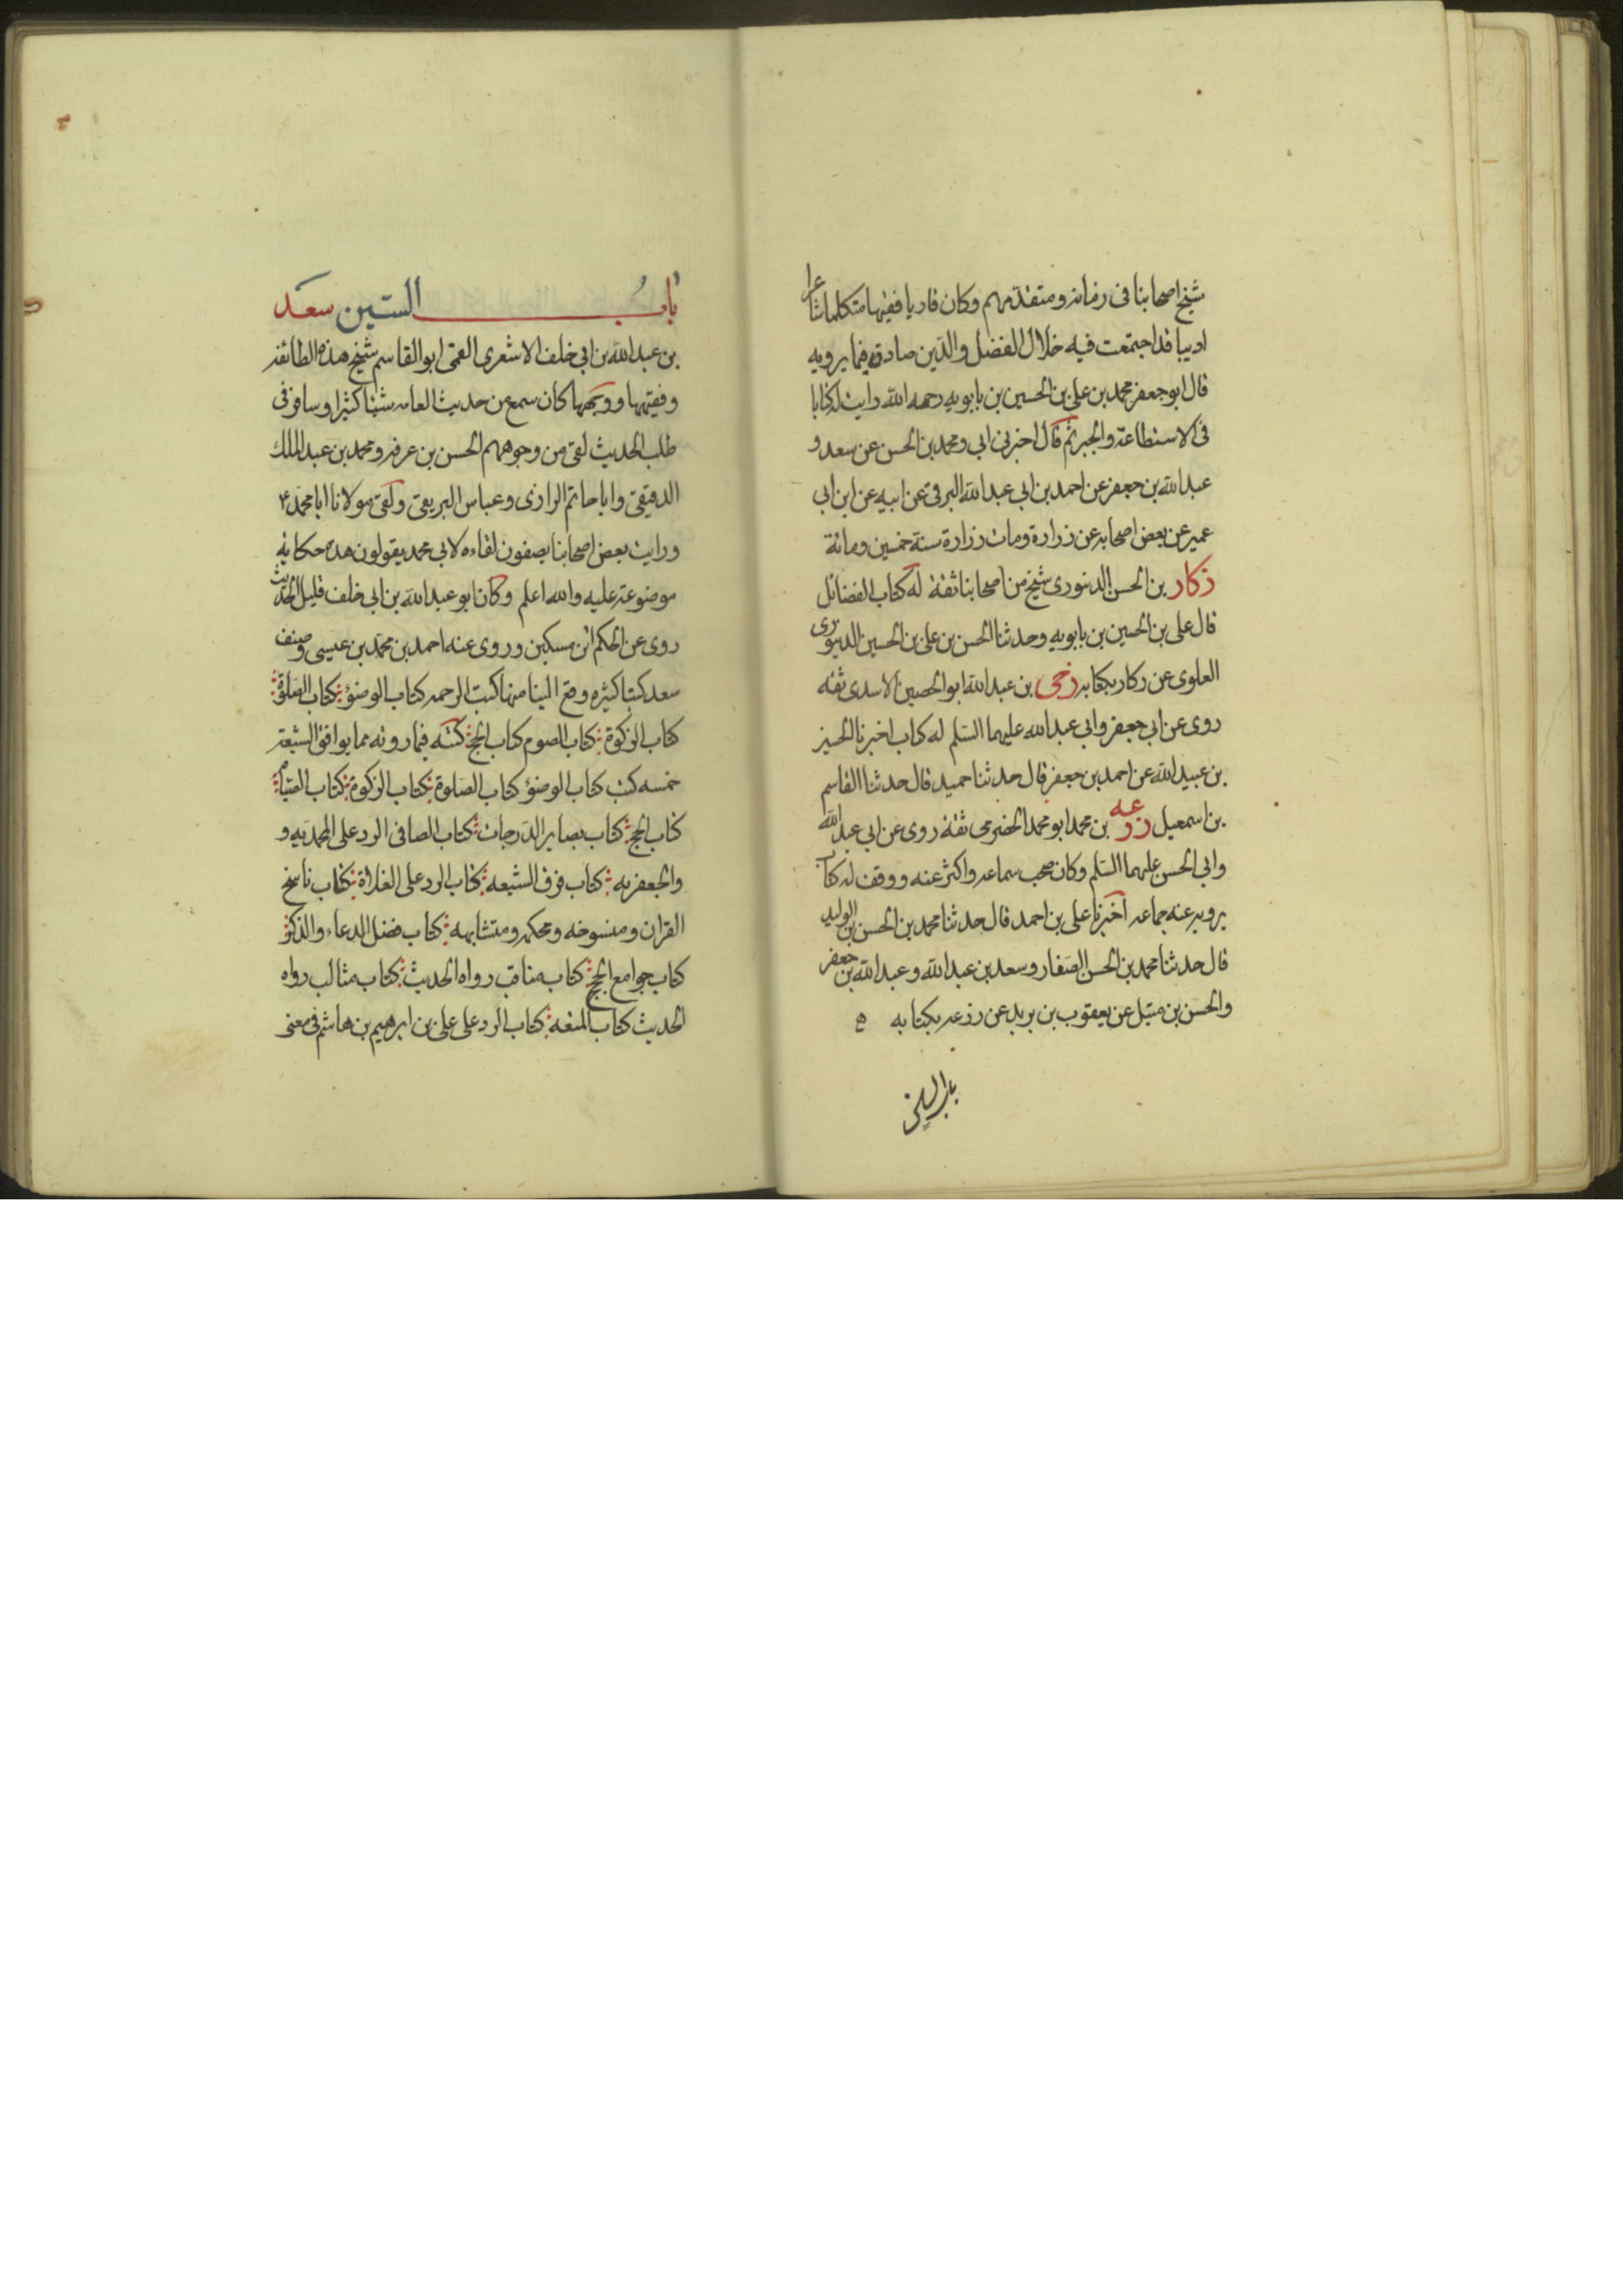 شيخ اصحابنا فى زمانه ومتقدمهم وكان قاريا فقيها متكلما شاعرا
اديبا قد اجتمعت فيه خلال الفضل والدين صادق فيما يرويه
قال ابو جعفر محمد بن على بن الحسين بن بابويه رحمه الله رايت له كتابا
فى الاستطاعة والجبر ثم قال اخبرنى ابى ومحمد بن الحسن عن سعد و
عبد الله بن جعفر عن احمد بن ابى عبد الله البرقى عن ابيه عن ابن ابى
عمير عن بعض اصحابه عن زرارة ومات زرارة سنة خمسين ومائة
زكار بن الحسن الدينورى شيخ من اصحابنا ثقة له كتاب الفضائل
قال على بن الحسين بن بابويه وحدثنا الحسن بن على بن الحسين الدينورى
العلوى عن زكار بكتابه زحى بن عبد الله ابو الحصين الاسدى ثقه
روى عن ابى جعفر وابى عبد الله عليهما السلم له كتاب اخبرنا الحسين
بن عبيد الله عن احمد بن جعفر قال حدثنا حميد قال حدثنا القاسم
بن اسمعيل زرعه بن محمد ابو محمد الحضرمى ثقة روى عن ابى عبد الله
وابى الحسن عليهما السلم وكان صحب سماعه واكثر عنه ووقف له كتاب
يرويه عنه جماعه اخبرنا على بن احمد قال حدثنا محمد بن الحسن بن الوليد
قال حدثنا محمد بن الحسن الصفار وسعد بن عبد الله وعبد الله بن جعفر
والحسن بن متيل عن يعقوب بن يزيد عن زرعه بكتابه
باب السين
باب السين سعد
بن عبد الله بن ابى خلف الاشعرى القمى ابو القاسم شيخ هذه الطائفه
وفقيهها ووجهها كان سمع من حديث العامه شيئا كثيرا وسافر فى
طلب الحديث لقى من وجوههم الحسن بن عرفه ومحمد بن عبد الملك
الدقيقى وابا حاتم الرازى وعباس البريقى ولقى مولانا ابا محمد ع
ورايت بعض اصحابنا يضعفون لقاءه لابى محمد يقولون هذه حكاية
موضوعة عليه والله اعلم وكان ابو عبد الله بن ابى خلف قليل الحديث
روى عن الحكم ابن مسكين وروى عنه احمد بن محمد بن عيسى وصنف
سعد كتبا كثيره وقع الينا منها كتب الرحمه كتاب الوضؤ كتاب الصلوة
كتاب الزكوة كتاب الصوم كتاب الحج كتبه فيما رواه مما يوافق الشيعة
خمسه كتب كتاب الوضؤ كتاب الصلوة كتاب الزكوة كتاب الصيام
كتاب الحج كتاب بصاير الدرجات كتاب الصافى الرد على المحمديه و
والجعفريه كتاب فرق الشيعه كتاب الرد على الغلاة كتاب ناسخ
القران ومنسوخه ومحكمه ومتشابهه كتاب فضل الدعاء والذكر
كتاب جوامع الحج كتاب مناقب رواه الحديث كتاب مثالب رواه
الحديث كتاب المتعه كتاب الرد على على بن ابرهيم بن هاشم فى معنى